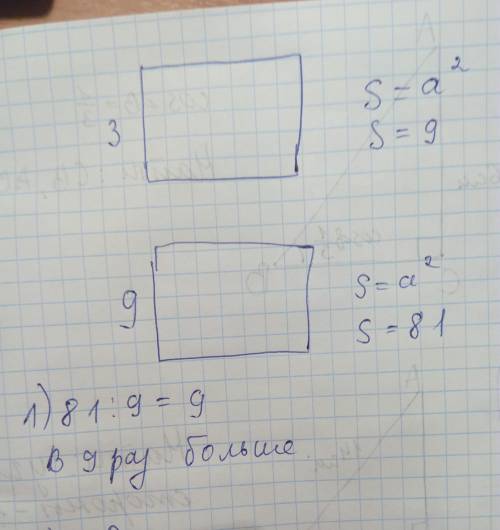 3
S = a²
S = 9
9
S = a²
S = 81
1) 81 : 9 = 9
в 9 раз больше.